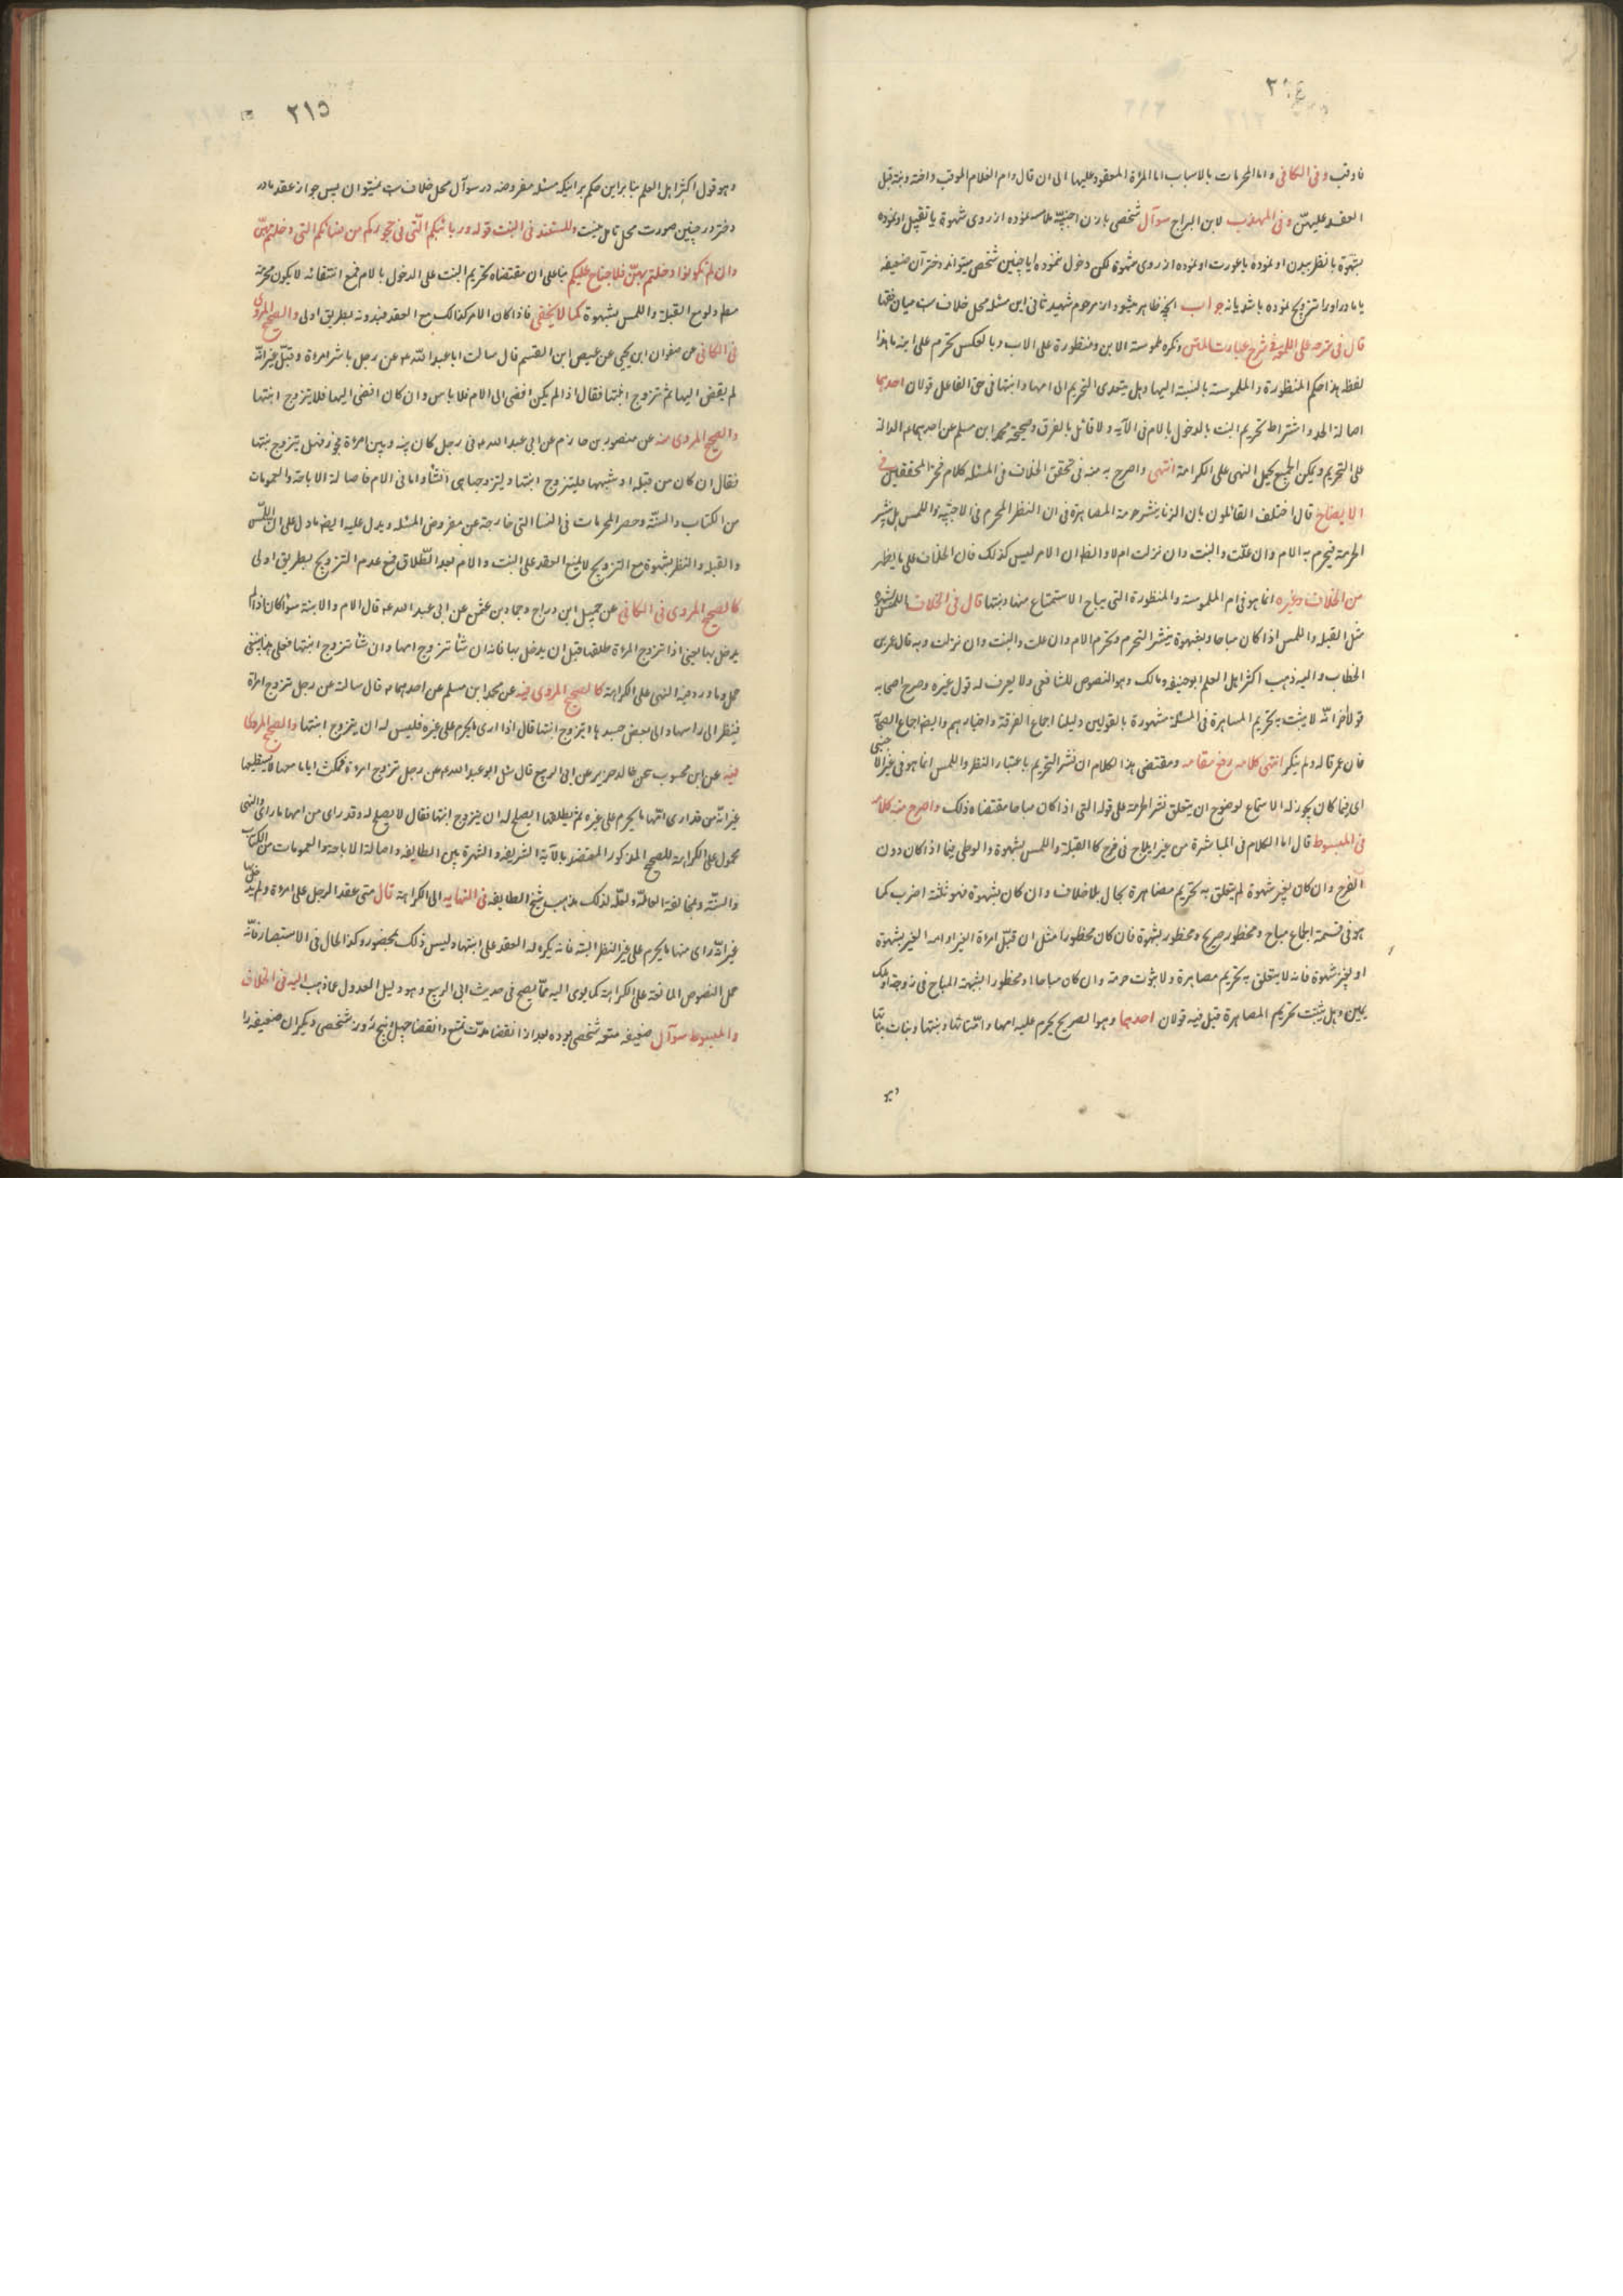 فاوقب وفى الكافى واما المحرمات بالاسباب اما المراة المعقود عليها الى ان قال وام الغلام الموقب واخته وبنته قبل
العقد عليهن وفى المهذب لابن البراج سوآل شخصى بازن اجنبيّه ملامسه نموده از روى شهوة يا تقبيل او نموده
بشهوة يا نظر ببدن او نموده يا بعورت او نموده از روى شهوة لكن دخول ننموده ايا چنين شخصى ميتواند دختر آن ضعيفه
يا مادر اورا تزويج نموده باشد يا نه جواب انچه ظاهر ميشود از مرحوم شهيد ثانى اين مسئله محل خلافست ميان فقها
قال فى شرحه على اللمعه فى شرح عبارت المتن وتكره ملموسة الابن ومنظورة على الاب وبالعكس تحرم على ابنه ما هذا
لفظه هذا حكم المنظورة والملموسة بالنسبة اليهما وهل يتعدى التحريم الى امها وابنتها فى حق الفاعل قولان احدهما
اصالة الحل واشتراط تحريم البنت بالدخول بالام فى الآيه ولا قائل بالفرق وصحيحة محمد ابن مسلم عن احدهما ع الدالة
على التحريم ويمكن الجمع بحمل النهى على الكراهة انتهى واصرح به منه فى تحقق الخلاف فى المسئله كلام فخر المحققين فى
الايضاح قال اختلف القائلون بان الزنا ينشر حرمة المصاهرة فى ان النظر المحرم فى الاجنبيه واللمس هل ينشر
الحرمة فيحرم به الام وان علت والبنت وان نزلت ام لا والظ ان الامر ليس كذلك فان الخلاف على ما يظهر
من الخلاف وغيره انما هو فى ام الملموسة والمنظورة التى يباح الاستمتاع منها وبنتها قال فى الخلاف اللمس بشهوة
مثل القبلة واللمس اذا كان مباحا وبشهوة ينشر التحرم وتحرم الام وان علت والبنت وان نزلت وبه قال عمر بن
الخطاب واليه ذهب اكثر اهل العلم ابو حنيفه ومالك وهو النصوص للشافعى ولا يعرف له قول غيره وصرح اصحابه
قولا آخر انّه لا يثبت به تحريم المصاهرة فى المسئلة مشهورة بالقولين دليلنا اجماع الفرقة واخبارهم وايضا اجماع الصحابه
فان عمر قاله ولم ينكر انتهى كلامه رفع مقامه ومقتضى هذا الكلام ان نشر التحريم باعتبار النظر واللمس انما هو فى غير الاجنبى
اى فيما كان يجوز له الاستمتاع لوضوح ان يتعلق نشر الحرمة على قوله التى اذا كان مباحا مقتضاه ذلك واصرح منه كلامه
فى المبسوط قال اما الكلام فى المباشرة من غير ايلاج فى فرج كالقبلة واللمس بشهوة والوطى فيما اذا كان دون
الفرج وان كان بغير شهوة لم يتعلق به تحريم مصاهرة بحال بلا خلاف وان كان بشهوة فهو ثلثة اضرب كما
هو فى قسمة الجماع مباح ومحظور صريح ومحظور بشهوة فان كان محظورا مثل ان قبّل امراة الغير او امه الغير بشهوة
او بغير شهوة فانه لا يتعلق به تحريم مصاهرة ولا ثبوت حرمة وان كان مباحا او محظورا بشبهة المباح فى زوجة او ملك
يمين وهل يثبت تحريم المصاهرة قيل فيه قولان احدهما وهو الصريح يحرم عليه امها وامهاتها وبنتها وبنات بناتها
٢١٥
وهو قول اكثر اهل العلم بنا براين حكم براينكه مسئله مفروضه در سوآل محل خلافست نميتوان پس جواز عقد مادر
دختر در چنين صورت محل تامل نيست والمستند فى البنت قوله وربائبكم اللّتى فى حجوركم من نسائكم التى دخلتم بهنّ
وان لم تكونوا دخلتم بهنّ فلا جناح عليكم بنا على ان مقتضاه تحريم البنت على الدخول بالام فمع انتفائه لا يكون محرمة
مطم ولو مع القبلة واللمس بشهوة كما لا يخفى فاذا كان الامر كذالك مع العقد فبدونه بطريق اولى والصحيح المروى
فى الكافى عن صفوان ابن يحيى عن عيص ابن القسم قال سالت ابا عبد اللّه ع عن رجل باشر امراة وقبّل غير انّه
لم يفض اليها ثم تزوج ابنتها فقال اذا لم يكن افضى الى الام فلا باس وان كان افضى اليها فلا يتزوج ابنتها
والصحيح المروى منه عن منصور بن حازم عن ابى عبد الله ع فى رجل كان بينه وبين امراة فجور فهل يتزوج بنتها
فقال ان كان من قبلة او شبهها فليتزوج ابنتها وليتزوجها هى انشاء واما فى الام فاصالة الاباحة والعمومات
من الكتاب والسنّة وحصر المحرمات فى النسا التى خارجة عن مفروض المسئله ويدل عليه ايضا ما دل على ان اللمس
والقبلة والنظر بشهوة مع التزويج لا يمنع العقد على البنت والام بعد الطّلاق فمع عدم التزويج بطريق اولى
كالصحيح المروى فى الكافى عن جميل ابن دراج وحماد بن عثمن عن ابى عبد الله ع قال الام والابنة سواء كان اذا لم
يدخل بها يعنى اذا تزوج المراة طلقها قبل ان يدخل بها فانه ان شاء تزوج امها وان شاء تزوج ابنتها فعلى هذا ينبغى
حمل ما ورد فيه النهى على الكراهة كالصحيح المروى فيه عن محمد ابن مسلم عن احدهما ع قال سالته عن رجل تزوج امراة
فينظر الى راسها والى بعض جسدها ايتزوج ابنتها قال اذا ارى ما يحرم على غيره فليس له ان يتزوج ابنتها والصحيح المروى
فيه عن ابن محبوب عن خالد حرير عن ابى الربيع قال سئل ابو عبد الله ع عن رجل تزوج امراة فمكث اياما معها لا يستطيعها
غير انّه من قد ارى انّها ما يحرم على غيره ثم يطلقها ايصلح له ان يتزوج ابنتها فقال لا يصلح له وقد راى من امها ما راى والنهى
محمول على الكراهة للصحيح المذكور المعتضد بالآية الشريفه والشهرة بين الطايفه واصالة الاباحة والعمومات من الكتاب
والسنّة ومخالفة العامّة ولعلّه لذلك ذهب شيخ الطايفه فى النهايه الى الكراهة قال متى عقد الرجل على امراة ولم يدخل بها
غير انّه راى منها ما يحرم على غير النظر اليه فانه يكره له العقد على ابنتها وليس ذلك بمحضور وكذا الحال فى الاستبصار فانّه
حمل النصوص المانعة على الكراهة كما يوى اليه ممّا يصح فى حديث ابى الربيع وهو دليل العدول عما ذهب اليه فى الخلاف
والمبسوط سوآل ضعيفه متعه شخصى بوده بعد از انقضا مدّت تمتع وانقضا چهل وپنج روز شخصى ديگر آن ضعيفه را